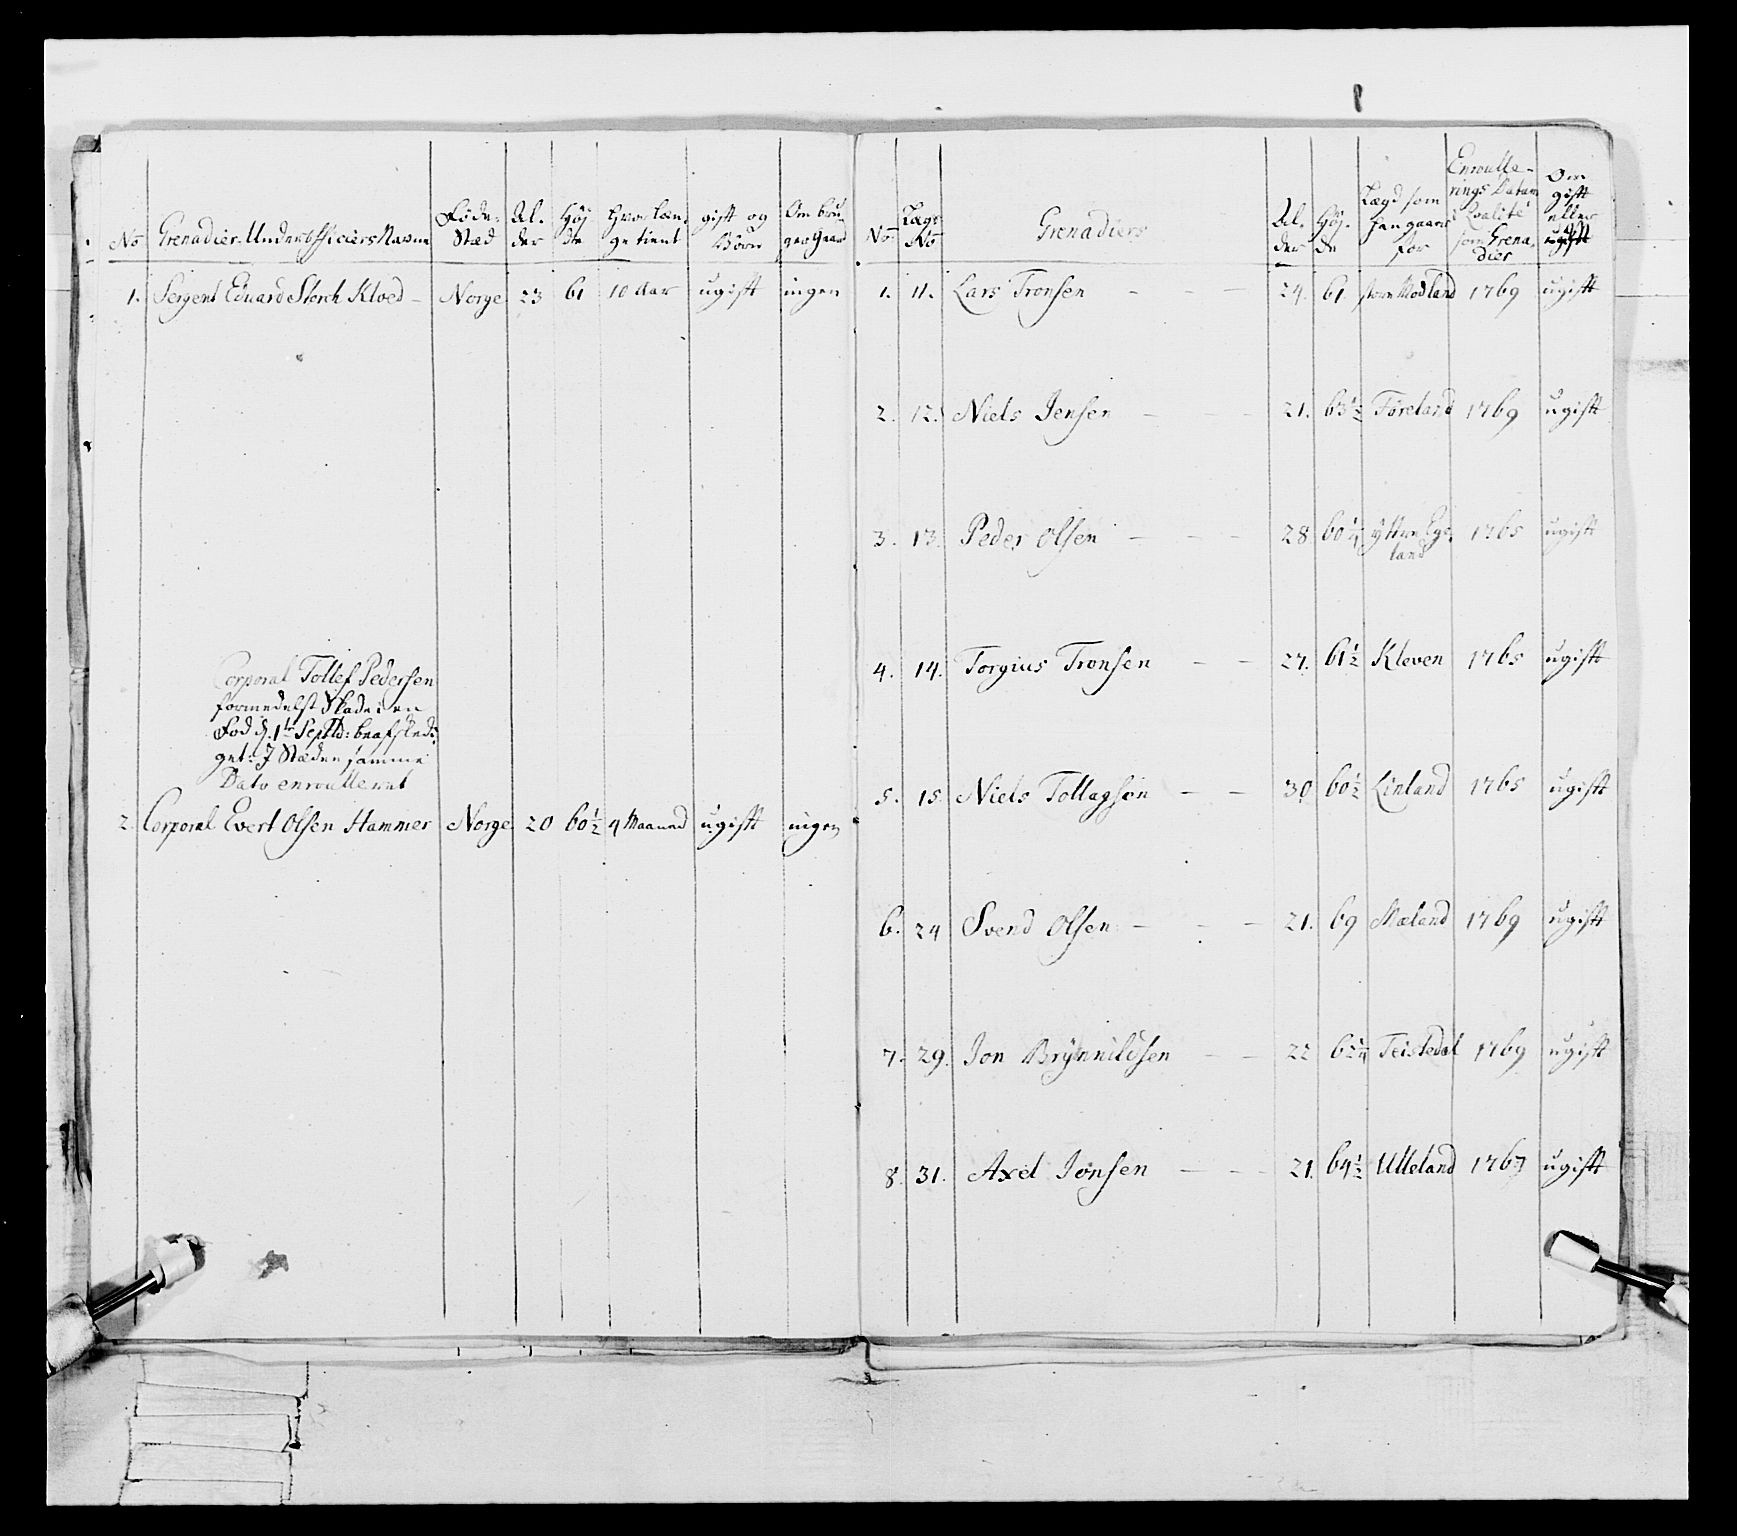 No Grenadier Underofficiers Navne Føde-Stæd Al-der Høj-de Hvor læn-ge tient gift og Børn Om bru-ger Gaard
1. Sergent Eduard Storch Kloed – Norge 23 61 10 Aar ugift ingen
Corporal Tollef Pedersen
formedelst Skade i en
Fod d. 1te Septbr: beafskedi-
get: I Stæden samme
Dato enroulleret
2. Corporal Evert Olsen Hammer Norge 20 60½ 4 Maaned ugift ingen
No Lægs No Grenadiers Al-der Høj-de Lægd som han gaar for Enroulle-rings Datum i Qvalité som Grena-dier Om gift eller ugift
1. 11. Lars Tronsen – – – 24. 61. store Modland 1769 ugift
2. 12. Niels Jensen – – – 21. 63½ Föreland 1769 ugift
3. 13. Peder Olsen – – – 28 60¼ ÿttre Egeland 1765 ugift
4. 14. Torgius Tronsen – – 27. 61½ Kleven 1765 ugift
5. 15. Niels Tollagsen – – 30 60½ Linland 1765 ugift
6. 24 Svend Olsen – – – 21. 69 Mæland 1769 ugift
7. 29. Jon Brÿnnildsen – – 22 62¼ Teistedal 1769 ugift
8. 31. Axel Jonsen – – 21. 64½ Ulleland 1767 ugift